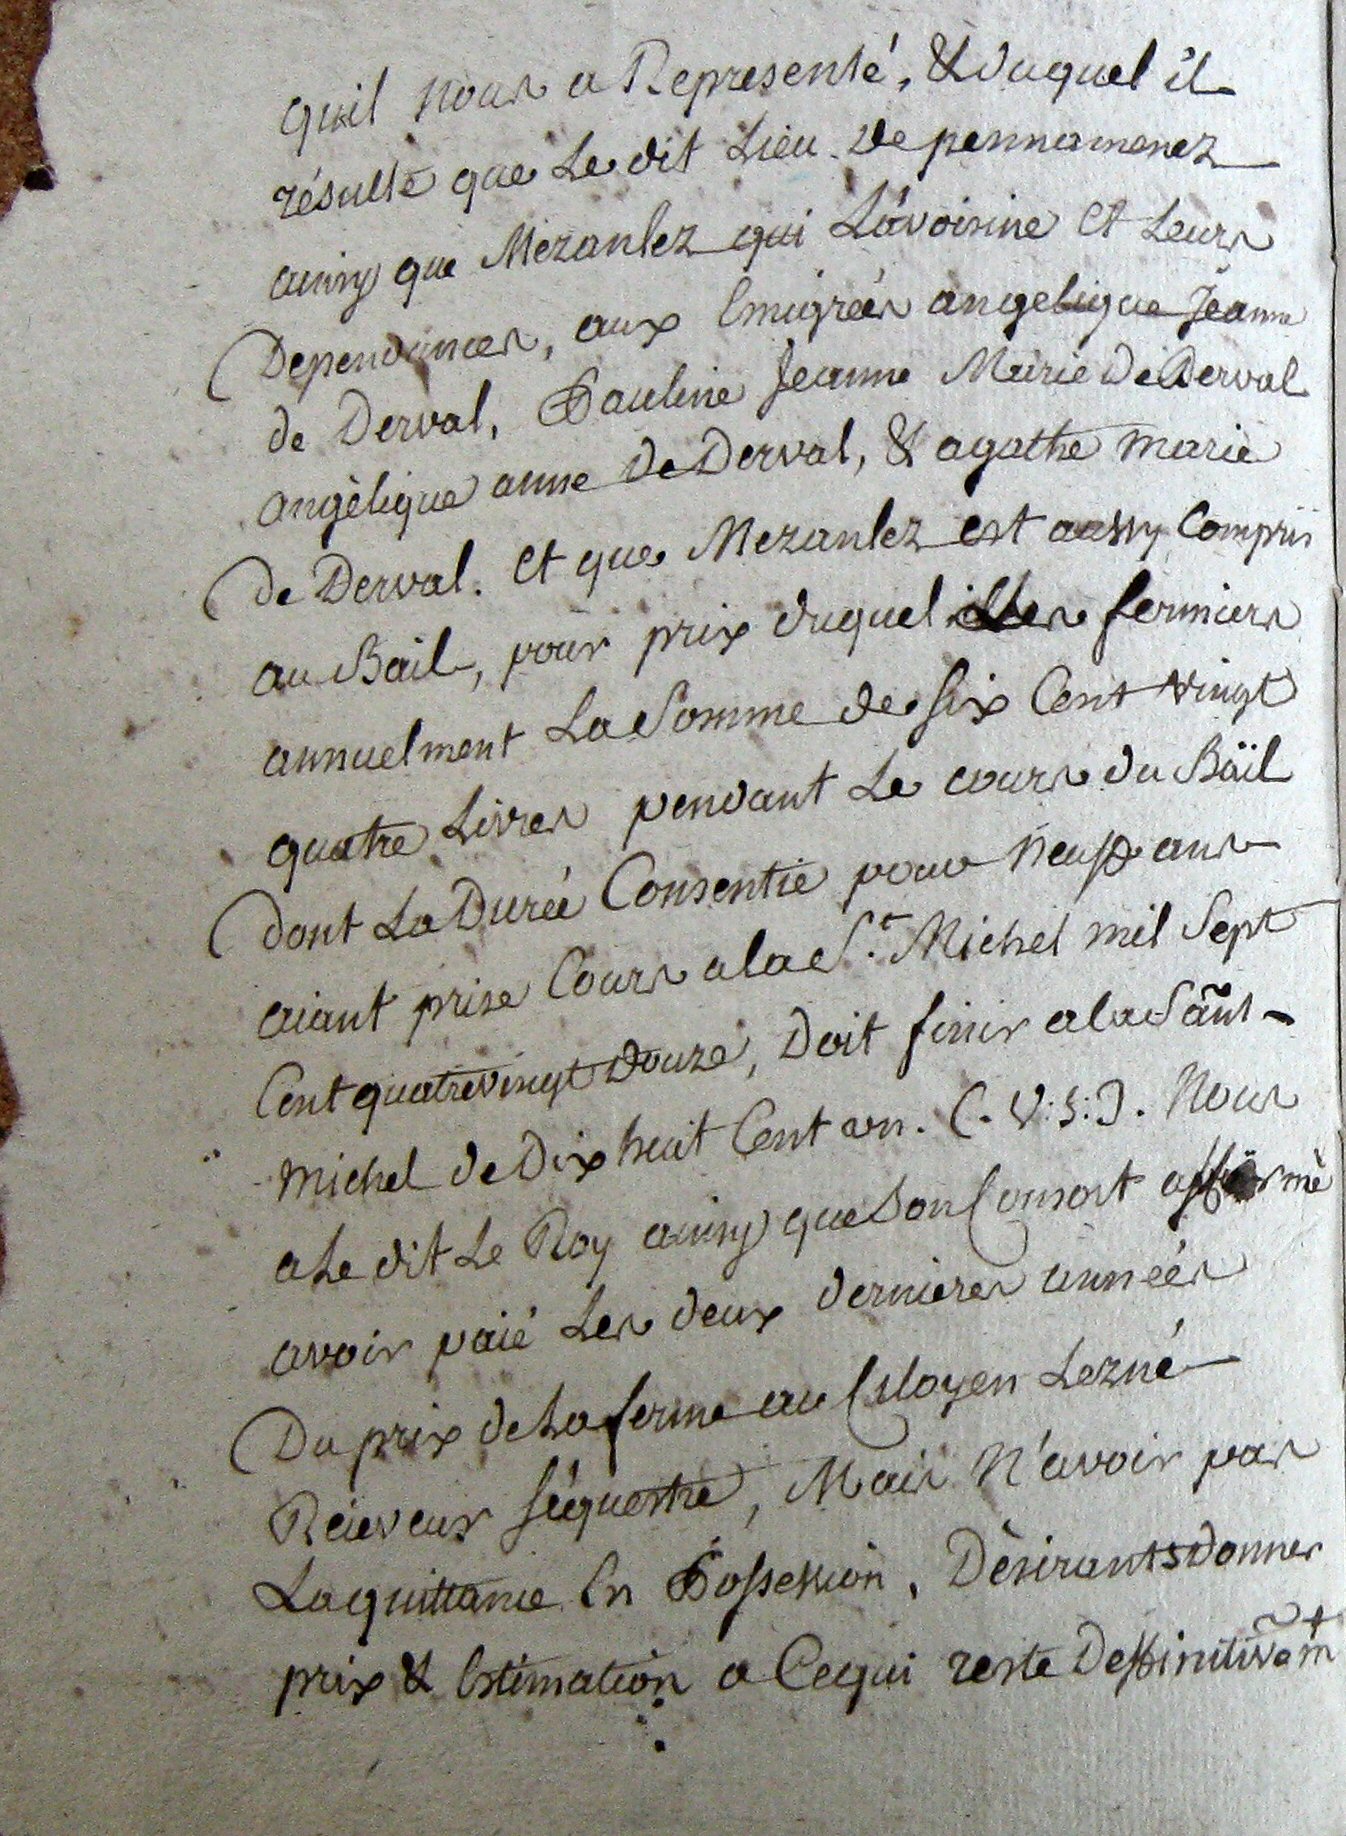 quil nous a Representé, & duquel il
résulte que Le dit Lieu de pennamenez
ainsy que Mezanlez qui L'avoisine et Leurs
Dependances, aux Emigrées angelique Jeanne
de Derval, Pauline Jeanne Marie De Derval
angèlique anne de Derval, & agathe marie
de Derval. et que Mezanlez est aussy Compris
au Bail, pour prix duquel Les fermiers
annuelment La Somme de six Cent vingt
quatre Livres pendant Le cours du Bäil
dont La Durée Consentie pour neuff ans
aiant prise Cours a la St. Michel mil Sept
Cent quatrevingt Douze, Doit finir a la Sãint-
michel de Dix huit Cent un. (. V: S:). Nous
a Le dit Le Roy ainsy que Son Consort affirmé
avoir païé Les deux dernieres années
Du prix de La ferme au Citoyen Lezné
Reçeveur séquestre, Mais N'avoir pas
La quittance En Possession. Dèsirants Donner
prix & Estimation a Cequi reste Deffinitivem̃t